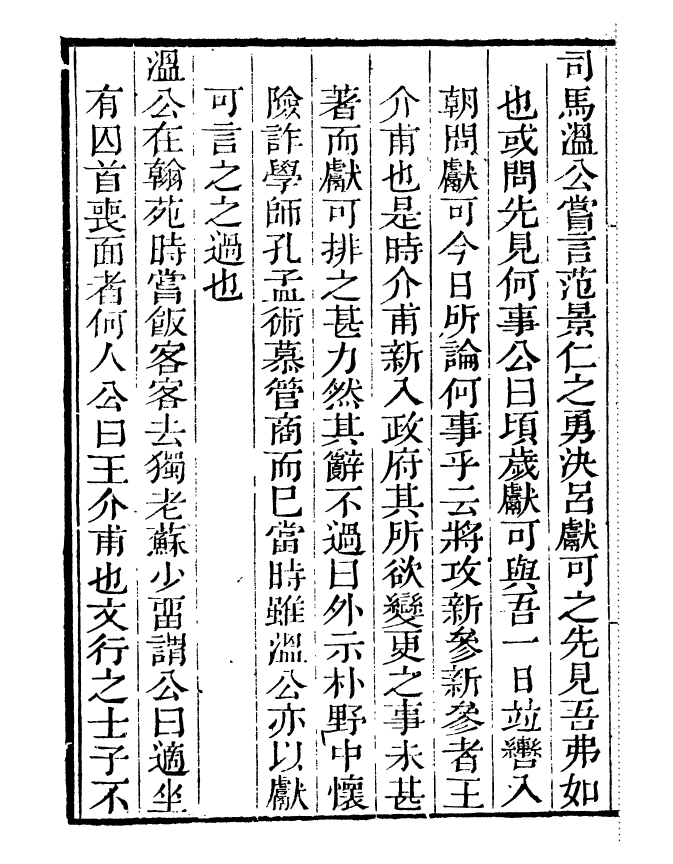 司馬溫公嘗言范景仁之勇決呂獻可之先見吾弗如
也或問先見何事公曰頃歲獻可與吾一日竝轡入
朝問獻可今日所論何事乎云將攻新參新參者王
介甫也是時介甫新入政府其所欲變更之事未甚
著而獻可排之甚力然其辭不過曰外示朴野中懷
險詐學師孔孟術慕管商而巳當時雖溫公亦以獻
可言之之過也
溫公在翰苑時嘗飯客客去獨老蘇少畱謂公曰適坐
有囚首喪面者何人公曰王介甫也文行之士子不